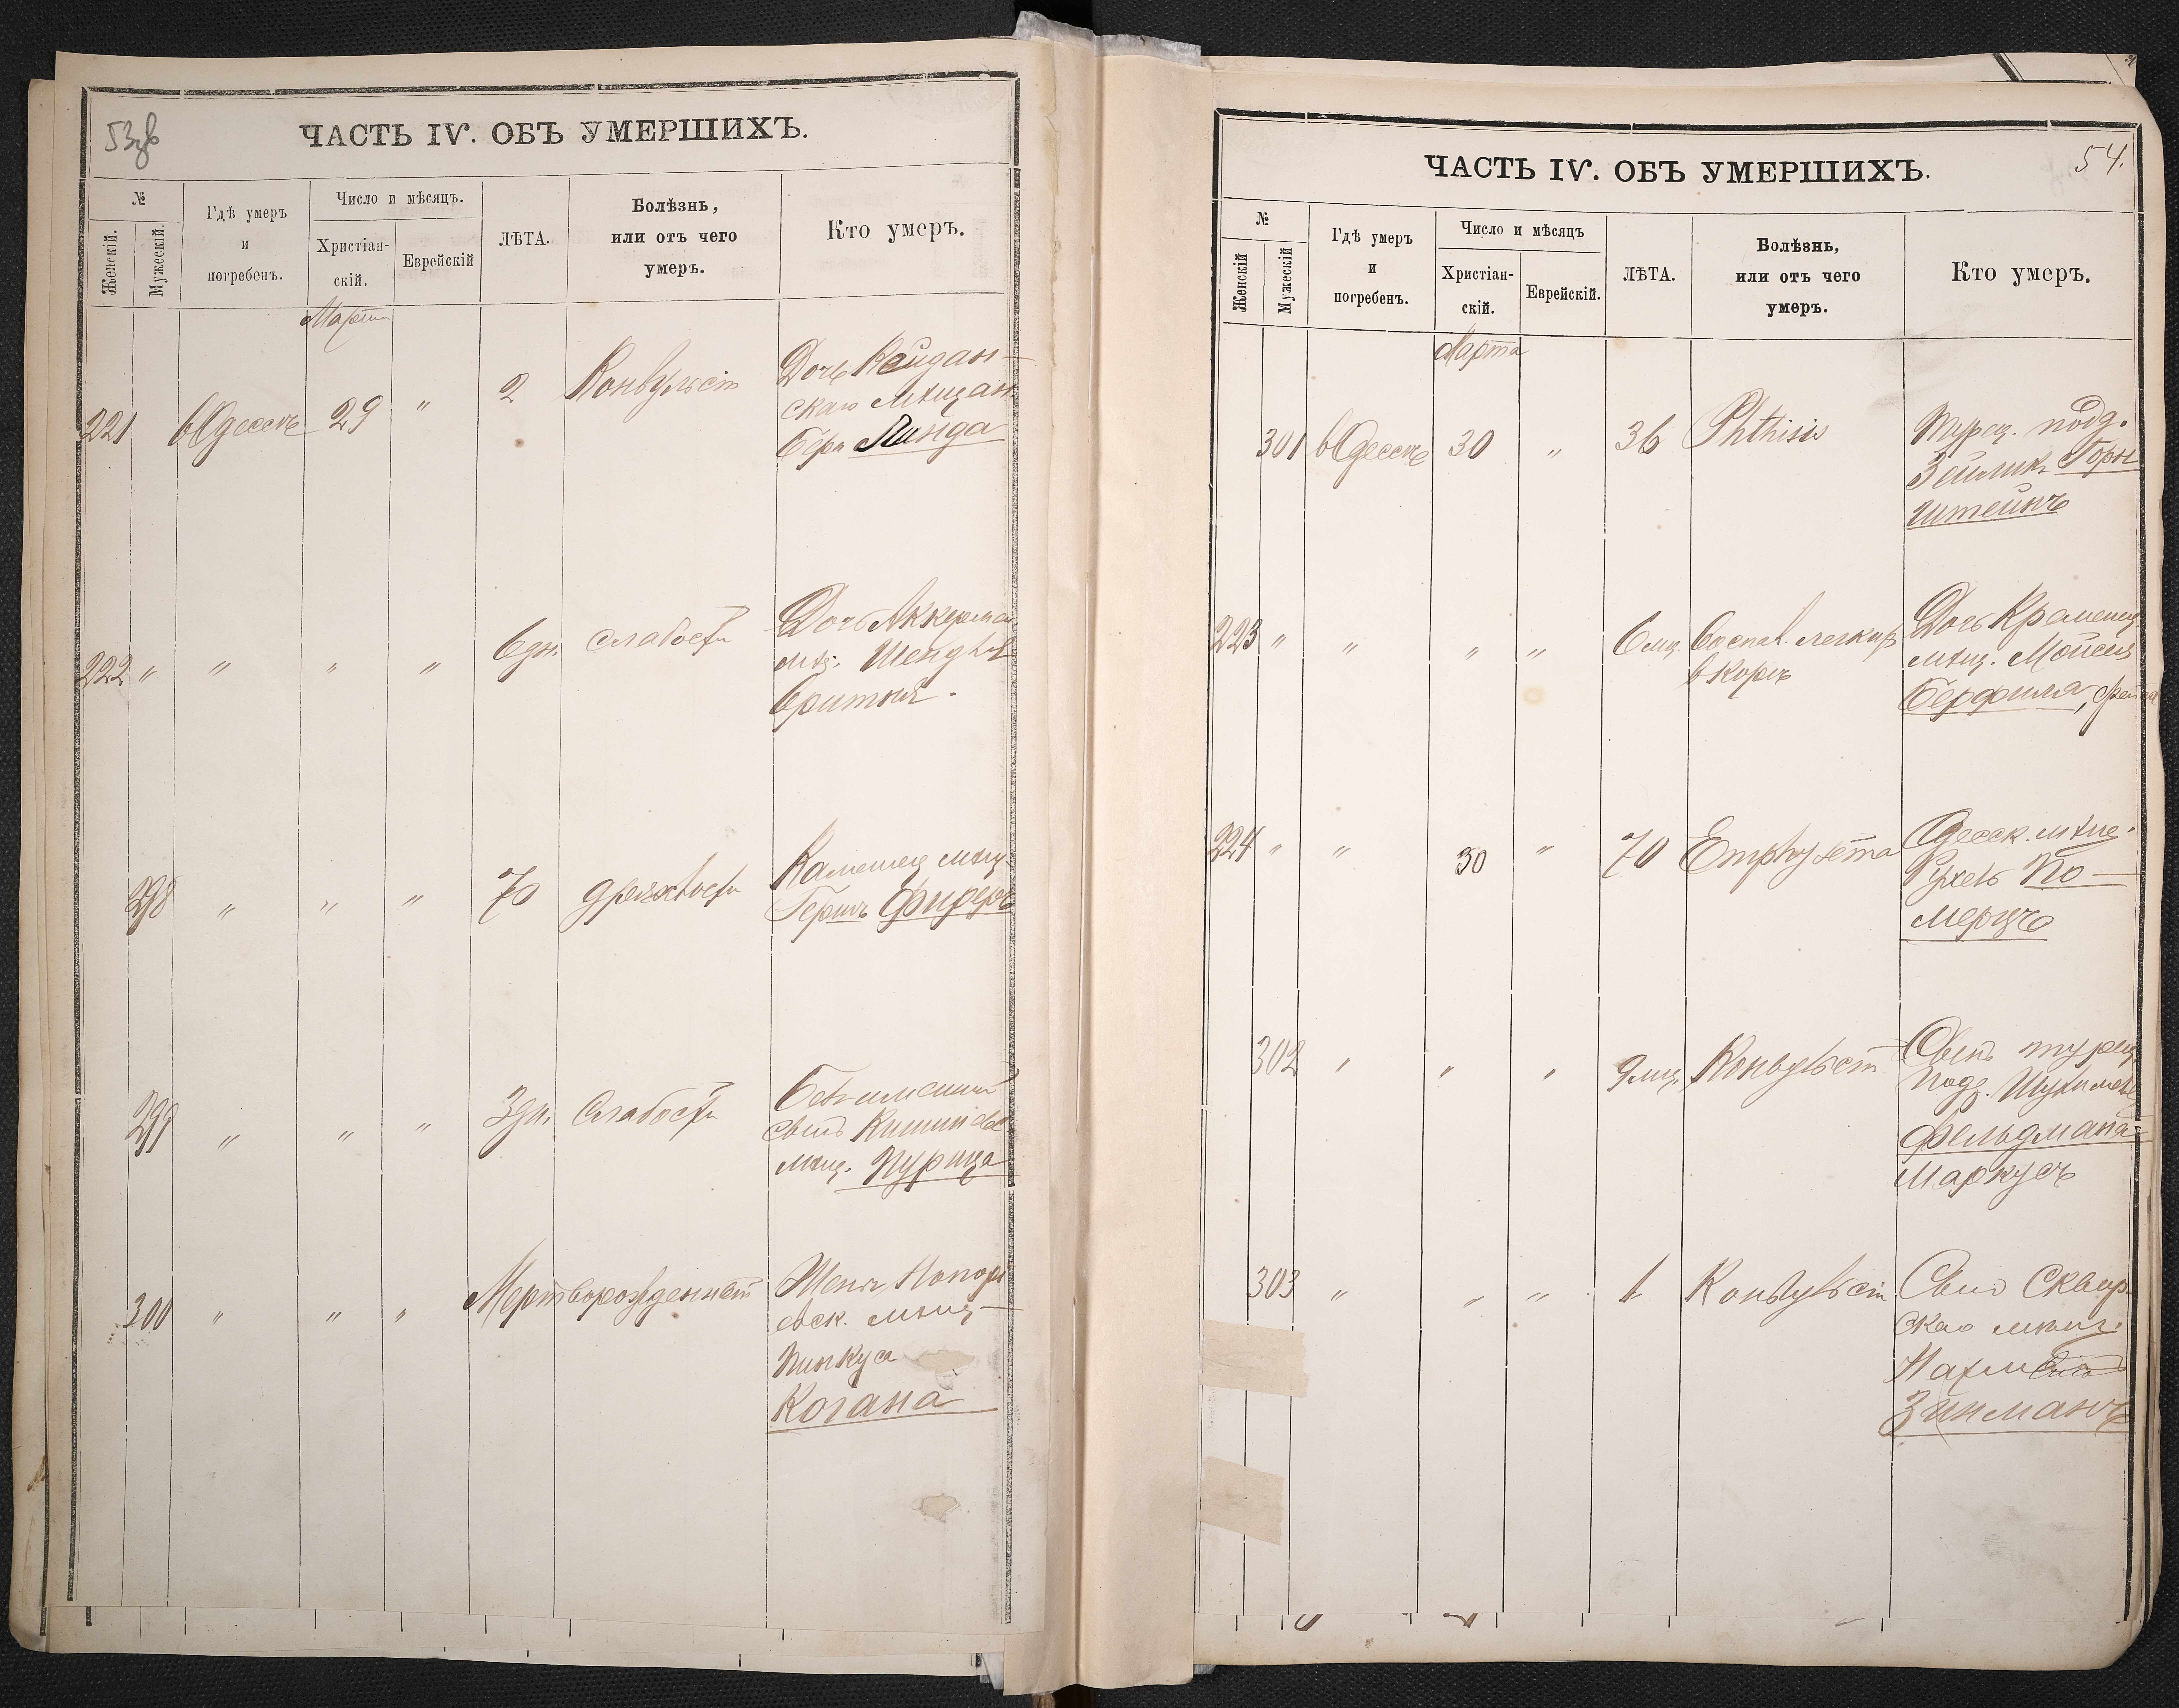 53
ЧАСТЬ IV. ОБЪ УМЕРШИХЪ.
№
Женскій.
Мужескій.
Гдѣ умеръ
и
погребенъ.
Число и мѣсяцъ.
Христіан-
скій.
Еврейскій
ЛѢТА.
Болѣзнь,
или отъ чего
умеръ.
Кто умеръ.
Марта
221 въ Одессѣ 29 " 2 Конвульсіи Дочь Койдан-
скаго мѣщан.
Бера Линда
222 " " " " 6 дн. слабости Дочь Аккерман
мѣщ.
298 " " " 70 дряхлости Каменец мѣщ.
Гершъ Фидеръ
299 " " " 3 дн. Слабости Безъимений
сынъ Кишинев
мѣщ. Пурица
300 " " " Мертворожденный Жены
евск. мѣщ-
Пинкуса
Когана
54.
ЧАСТЬ IV. ОБЪ УМЕРШИХЪ.
№
Женскій
Мужескій
Гдѣ умеръ
и
погребенъ.
Число и мѣсяцъ
Христіан-
скій.
Еврейскій.
ЛѢТА.
Болѣзнь,
или отъ чего
умеръ.
Кто умеръ.
Марта
301 въ Одессѣ 30 " 36 Phthisis Турец. подд.
Зейликъ Горн
штейнъ
223 " " " " 6 мц. Воспал. легкихъ Дочь Кременец
в кори мѣщ. Мойсея
224 " " 30 " 70 Emphysema Одесск. мѣщ.
Рухель По-
мерцъ
302 " " " 9 мц. Конвульсіи Сынъ турец.
подд.
Фельдмана-
Маркусъ
303 " " " 1 Конвульсіи Сынъ Сквир-
скаго мѣщ.
Зинманъ